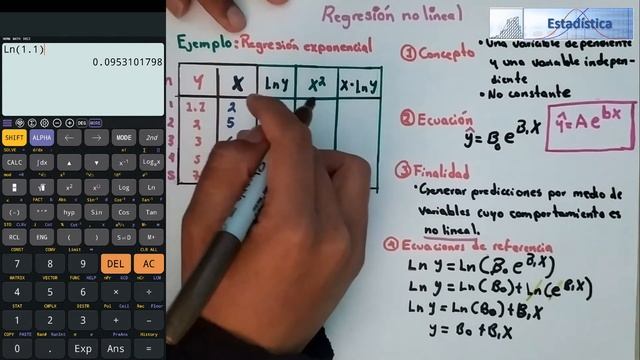 Ln(1.1)
0.0953101798
SHIFT ALPHA MODE 2nd
CALC ∫dx x⁻¹ Logₐx
x² Ln
(-) hyp Sin Cos Tan
RCL ENG ( ) S⇔D M+
7 8 9 DEL AC
4 5 6 × ÷
1 2 3 + -
0 . Exp Ans =
Regresión no lineal
Estadística
Ejemplo: Regresión exponencial
n Y X Ln Y X² X·Ln Y
1 1.1 2
2 2 5
3 3
4 5
5 7
① Concepto
• Una variable dependiente
y una variable indepen-
diente
• No constante
② Ecuación
ŷ = B₀ e^B₁X
ŷ = A e^bx
③ Finalidad
• Generar predicciones por medio de
variables cuyo comportamiento es
no lineal.
④ Ecuaciones de referencia
Ln y = Ln (B₀ e^B₁X)
Ln y = Ln(B₀) + Ln(e^B₁X)
Ln y = Ln(B₀) + B₁X
y = B₀ + B₁X